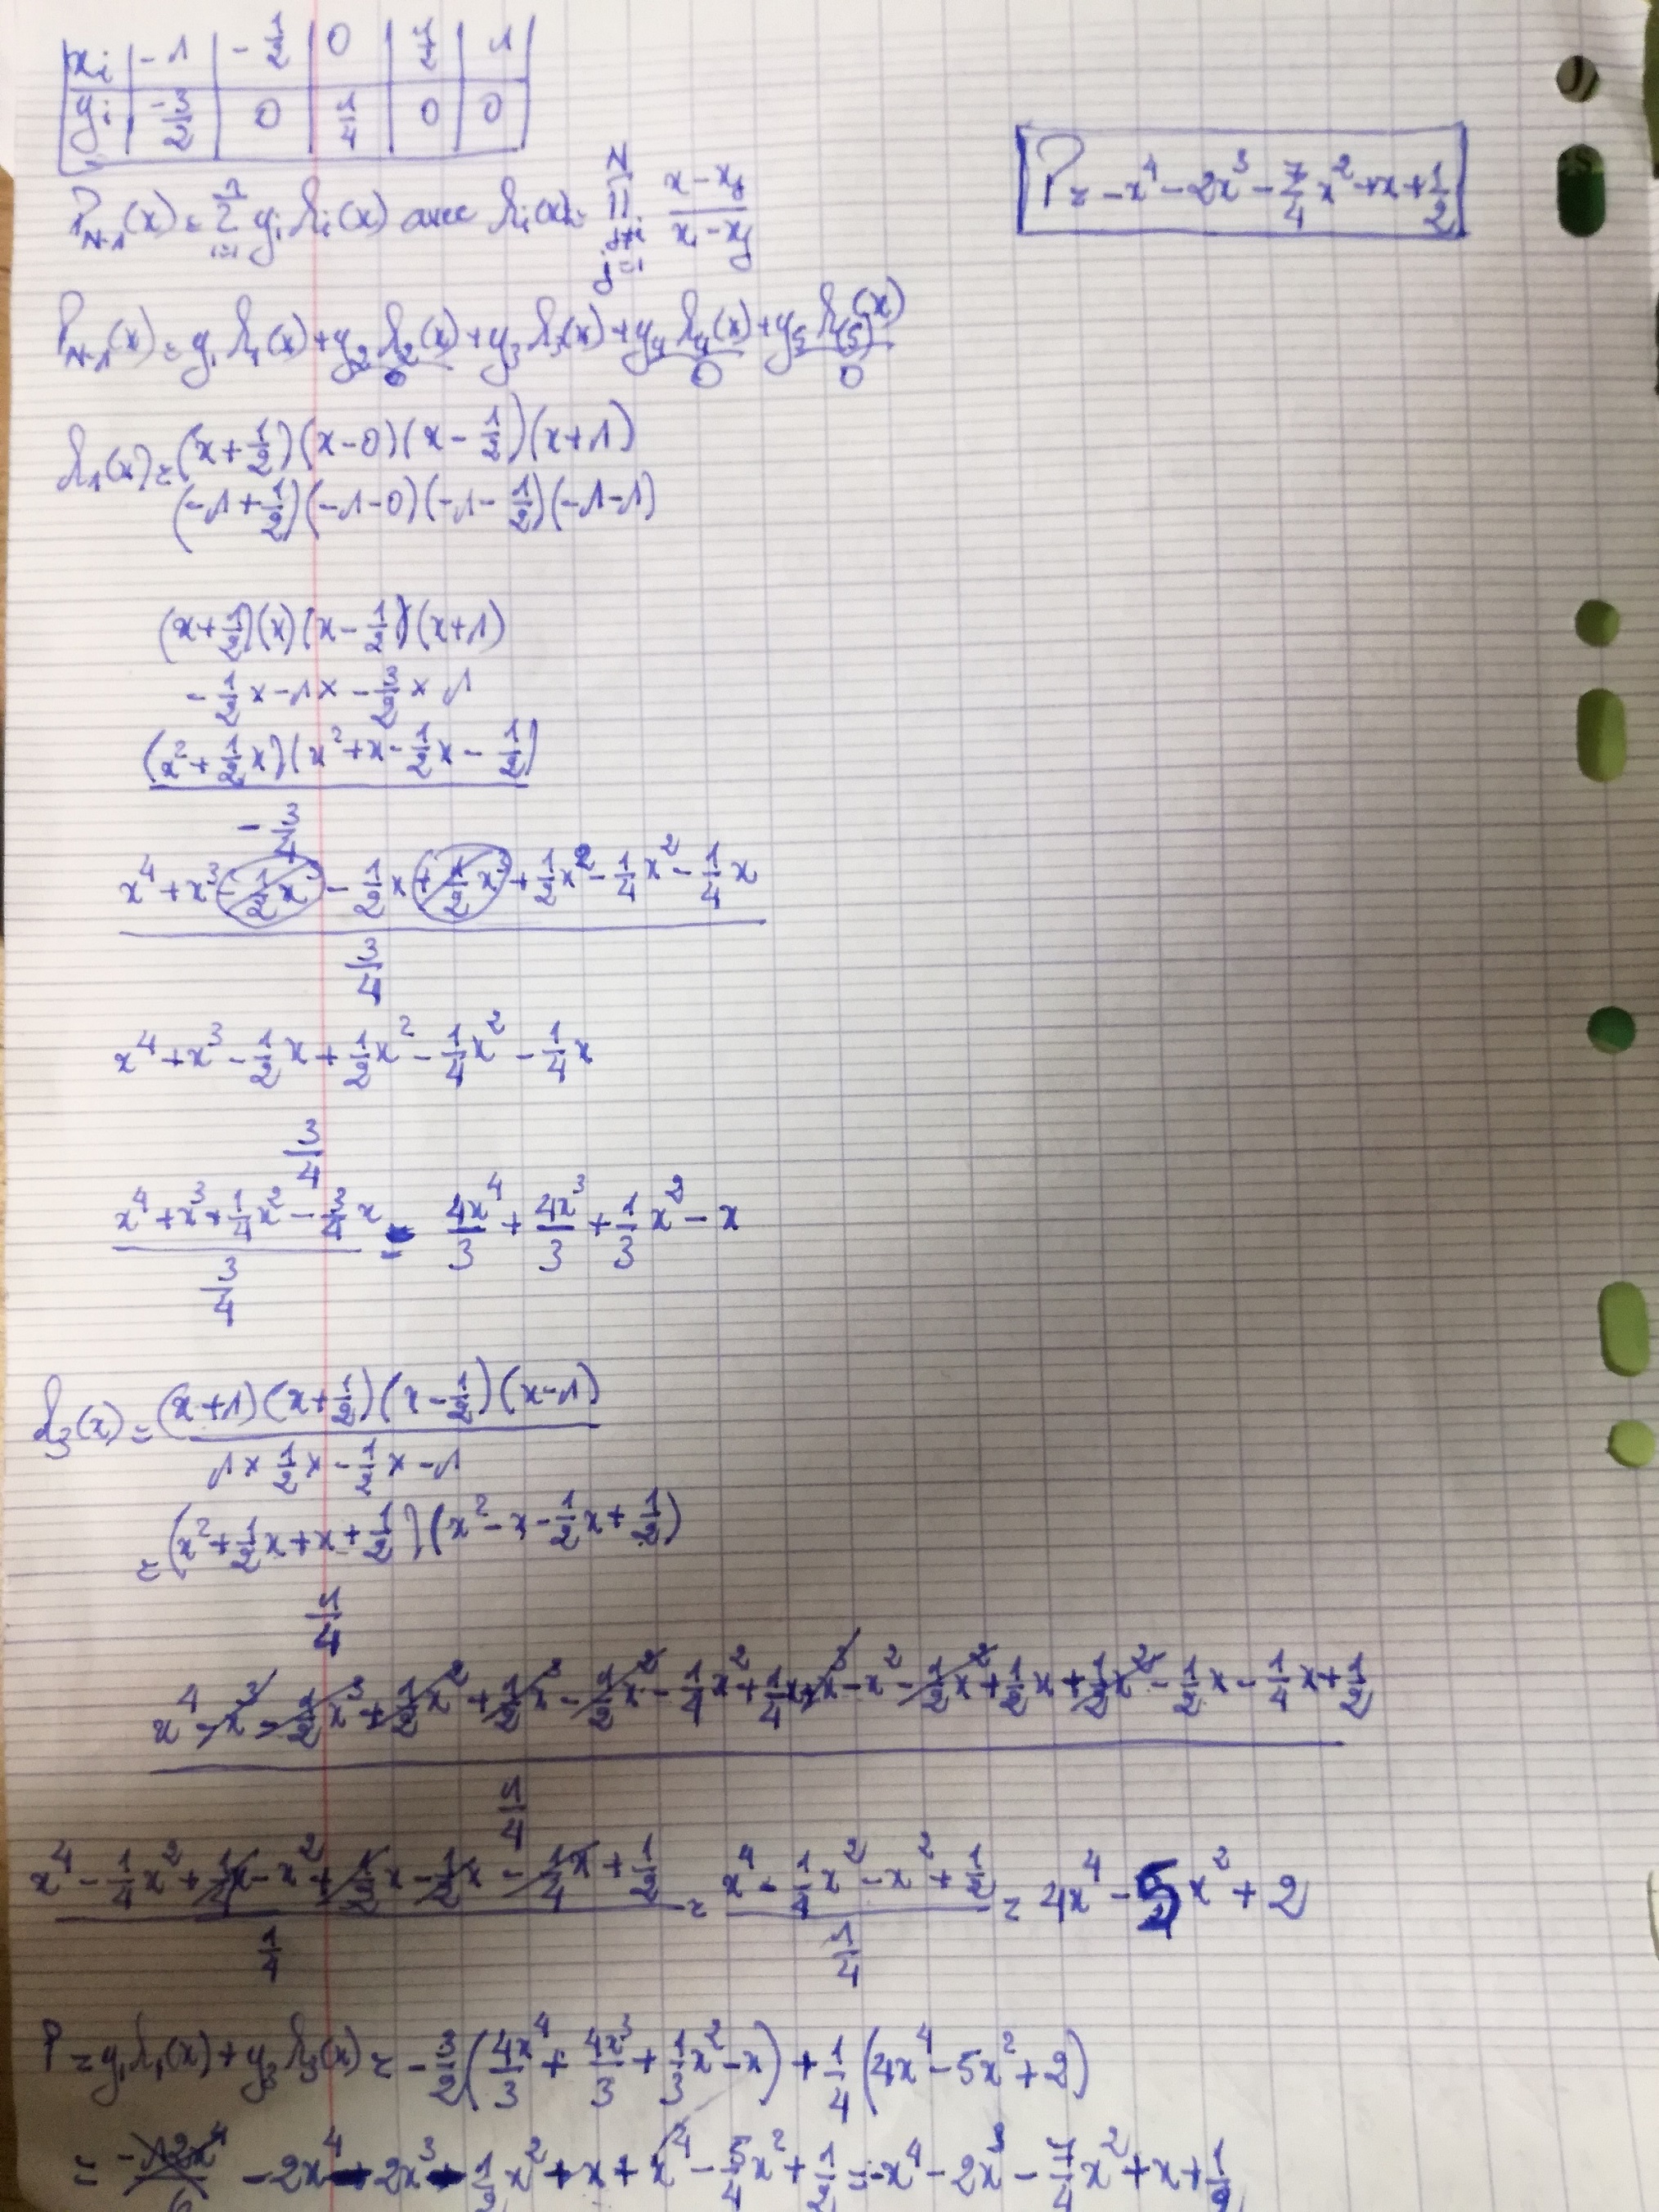 xi | -1 | -1/2 | 0 | 1/2 | 1
yi | -3/2 | 0 | 1/4 | 0 | 0
P = -x^4 - 2x^3 - 7/4 x^2 + x + 1/2
P_{N-1}(x) = Σ_{i=1} yi li(x) avec li(x) = Π_{j≠i, j=1}^{N} (x - xj)/(xi - xj)
P_{N-1}(x) = y1 l1(x) + y2 l2(x) + y3 l3(x) + y4 l4(x) + y5 l5(x)
0 0 0
l1(x) = (x + 1/2)(x - 0)(x - 1/2)(x + 1)
(-1 + 1/2)(-1 - 0)(-1 - 1/2)(-1 - 1)
(x + 1/2)(x)(x - 1/2)(x + 1)
-1/2 × -1 × -3/2 × 1
(x^2 + 1/2 x)(x^2 + x - 1/2 x - 1/2)
- 3/4
x^4 + x^3 - 1/2 x^3 - 1/2 x + 1/2 x^3 + 1/2 x^2 - 1/4 x^2 - 1/4 x
3/4
x^4 + x^3 - 1/2 x + 1/2 x^2 - 1/4 x^2 - 1/4 x
3/4
(x^4 + x^3 + 1/4 x^2 - 3/4 x)/(3/4) = 4x^4/3 + 4x^3/3 + 1/3 x^2 - x
l3(x) = (x + 1)(x + 1/2)(x - 1/2)(x - 1)
1 × 1/2 × -1/2 × -1
= (x^2 + 1/2 x + x + 1/2)(x^2 - x - 1/2 x + 1/2)
1/4
x^4 - x^3 - 1/2 x^3 + 1/2 x^2 + 1/2 x^3 - 1/2 x^2 - 1/4 x^2 + 1/4 x + x^3 - x^2 - 1/2 x^2 + 1/2 x + 1/2 x^2 - 1/2 x - 1/4 x + 1/2
1/4
(x^4 - 1/4 x^2 + 1/4 x - x^2 + 1/2 x - 1/2 x - 1/4 x + 1/2)/(1/4) = (x^4 - 1/4 x^2 - x^2 + 1/2)/(1/4) = 4x^4 - 5x^2 + 2
P = y1 l1(x) + y3 l3(x) = -3/2 (4x^4/3 + 4x^3/3 + 1/3 x^2 - x) + 1/4 (4x^4 - 5x^2 + 2)
= -12x^4/6 - 2x^4 - 2x^3 - 1/2 x^2 + x + x^4 - 5/4 x^2 + 1/2 = -x^4 - 2x^3 - 7/4 x^2 + x + 1/2